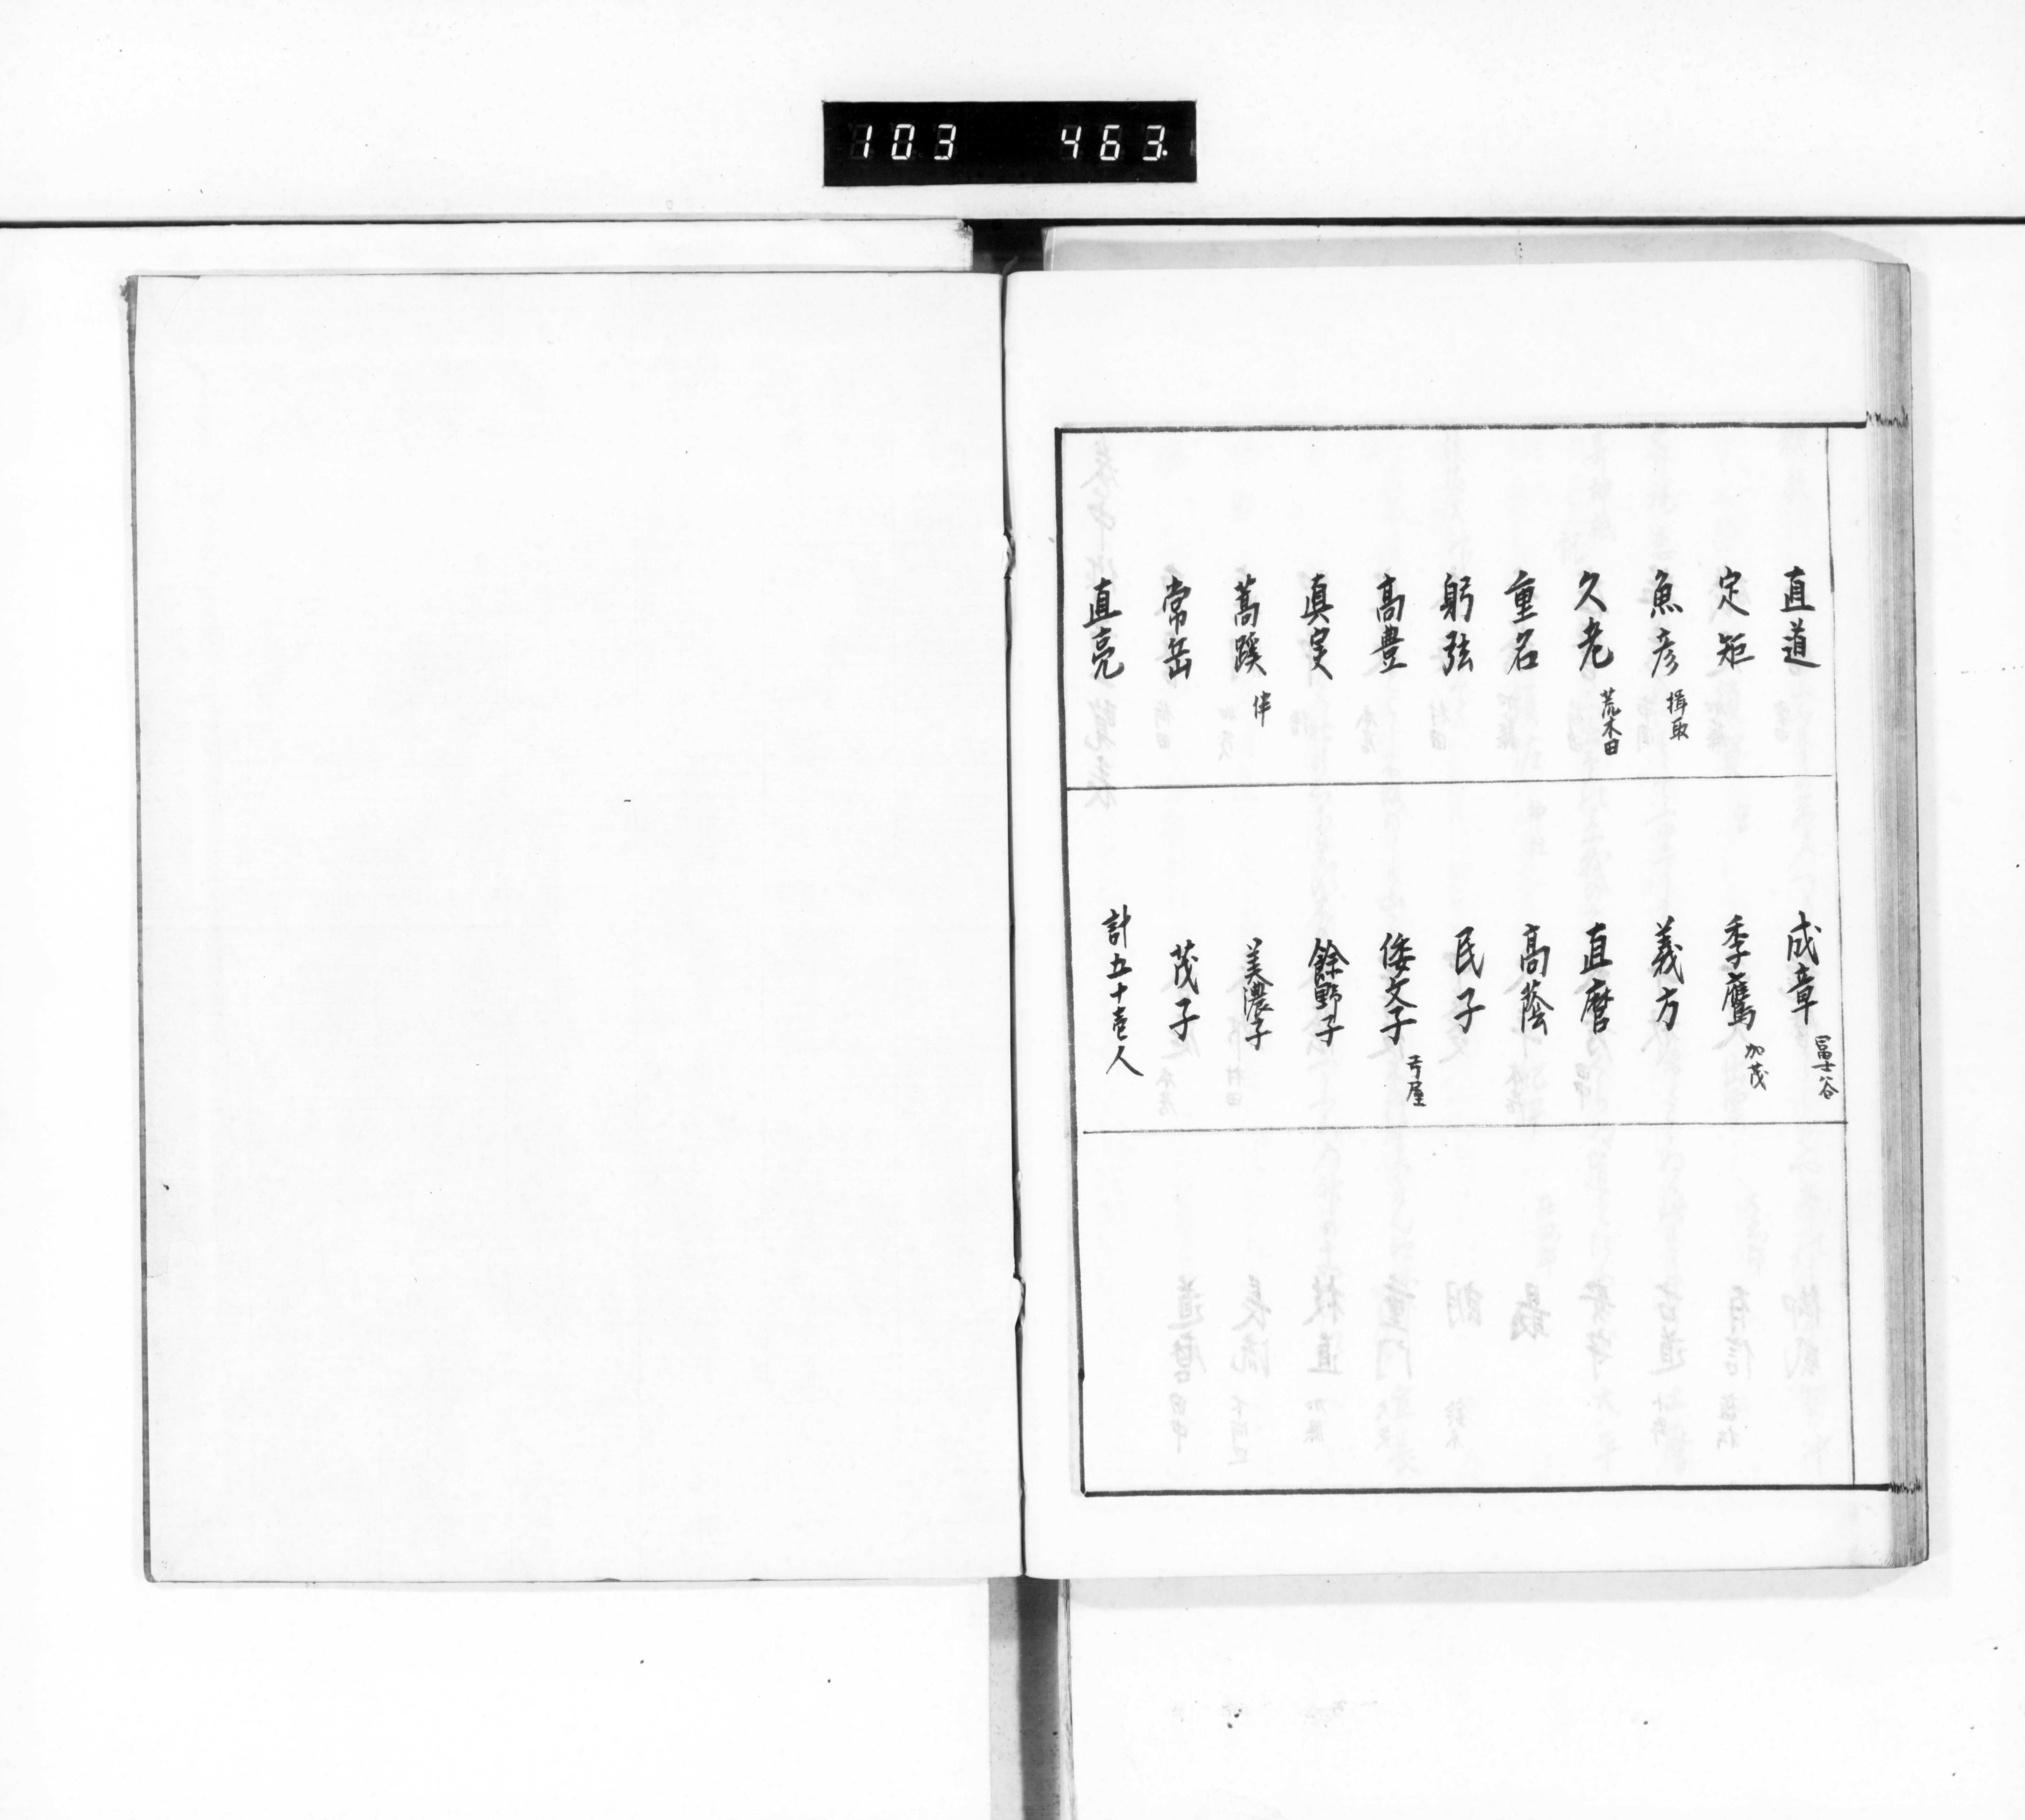 103 463
直道
定矩
魚彦 揖取
久老 荒木田
重名
躬弦
高豊
真実
蒿蹊 伴
常岳
直亮
成章 冨士谷
季鷹 加茂
義方
直麿
高蔭
民子
倭文子 弓屋
餘野子
美濃子
茂子
計五十壱人